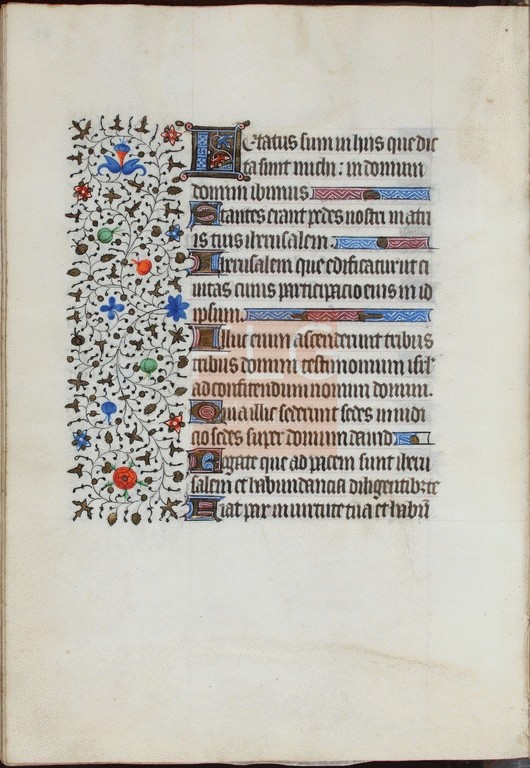 Letatus sum in hijs que dic
ta sunt michi: in domum
domini ibimus
Stantes erant pedes nostri in atri
is tuis iherusalem.
Iherusalem que edificatur ut ci
uitas cuius participacio eius in id
ipsum.
Illuc enim ascenderunt tribus
tribus domini testimonium isrl
ad confitendum nomini domini.
Quia illic sederunt sedes in iudi
cio sedes super domum dauid
Rogate que ad pacem sunt iheru
salem et habundancia diligentibz te
Fiat pax in uirtute tua et habū